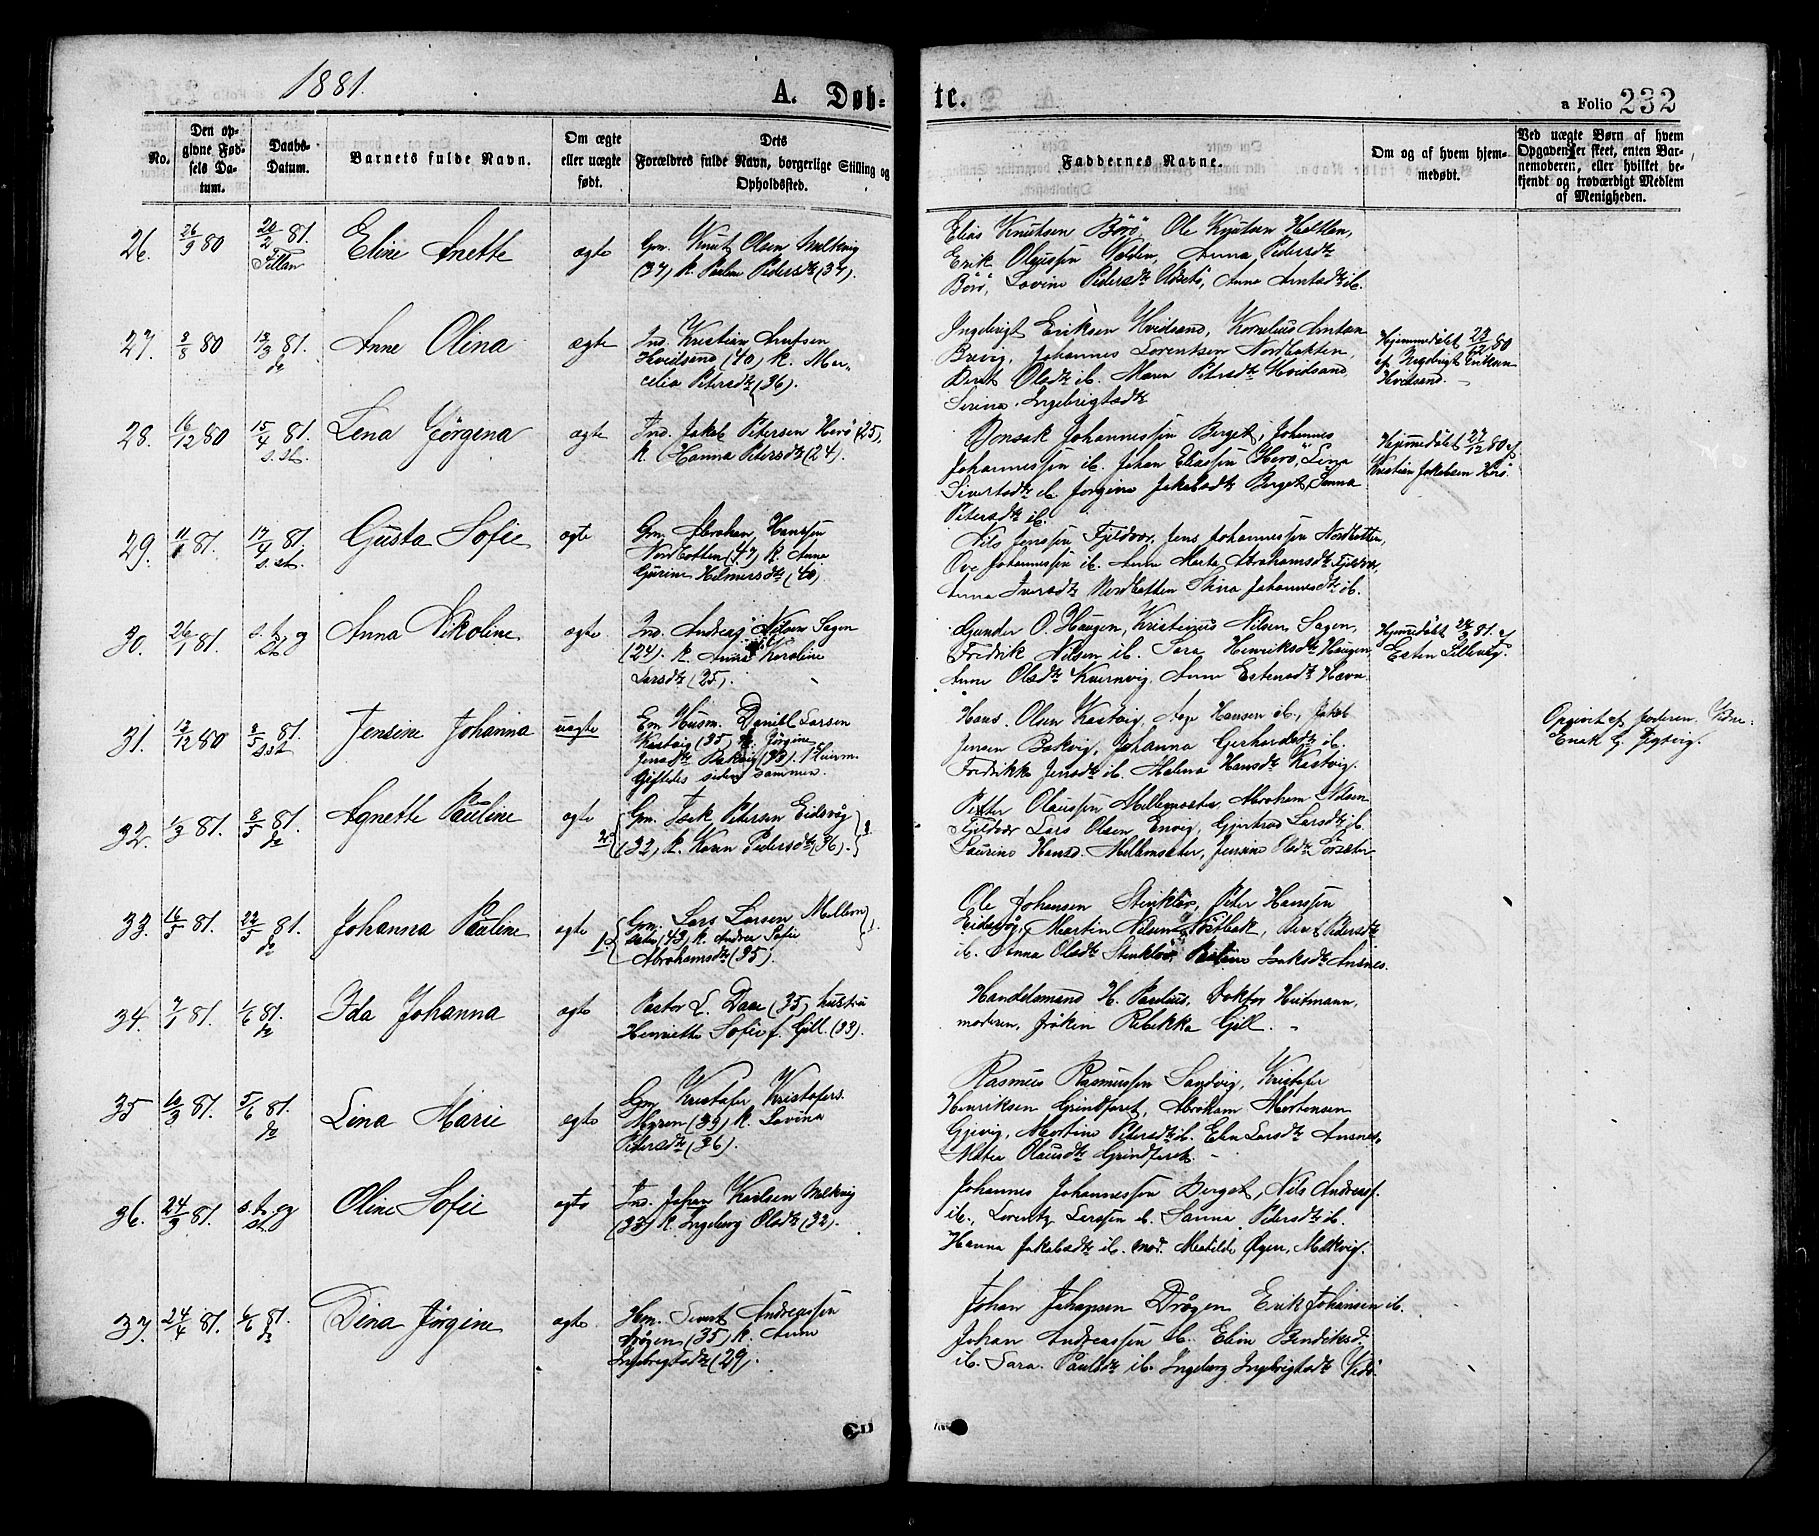 1881.
A. Døb-
te.
a Folio 232
No.
Den op-
givne Fød-
sels Da-
tum.
Daabs-
Datum.
Barnets fulde Navn.
Om ægte
eller uægte
født.
Dets
Forældres fulde Navn, borgerlige Stilling og
Opholdssted.
Faddernes Navne.
Om og af hvem hjem-
medøbt.
Ved uægte Børn af hvem
Opgaven er skeet, enten Bar-
nemoderen, eller hvilket be-
kjendt og troværdigt Medlem
af Menigheden.
26. 26/9 80 20/2 81. Eline Anette ægte Gm. Knut Olsen Melkvig
Fillan
(37) K. Pedersdtr (37).
Elias Knutsen Börö, Ole Knutsen Holtan,
Erik Olaussen Valden, Anna Pedersdtr
Börö, Lovine Pedersdtr Anna ib.
27. 3/8 80 13/3 81. Anne Olina ægte Ind. Kristian Arntsen
do
Hvidsand (40) K. Mar-
celia Petersdtr (36).
Ingebrigt Eriksen Hvidsand, Kornelius Arntsen
Johannes Lorentsen Nordbotten,
Berit Olsdtr ib. Maren Petersdtr Hvidsand
Serina Ingebrigtsdtr
Hjemmedøbt 23/12 80
af Ingebrigt Eriksen
Hvidsand.
28. 16/12 80 15/4 81. Lena Jörgena ægte Ind. Jakob Petersen Herö (25),
s. st.
K. Hanna Petersdtr (24).
Johannessen Berget, Johannes
Johannessen ib. Johan Eliassen Herö, Lina
Sivertsdtr ib. Jorgine Jakobsdtr Berget,
Petersdtr ib.
Hjemmedøbt 27/12 80 af
Kristian Jakobsen Herö.
29. 11/1 81. 17/4 81. Gusta Sofie ægte Gm. Abraham Hanssen
s. st.
Nordbotten (47) K. Anna
Gurine Helmersdtr (40).
Nils Jenssen Fjeldvær, Jens Johannessen Nordbotten,
Ove Johannessen ib. Anne Marta Abrahamsdtr Fjeldvær,
Anna Iversdtr Nordbotten Stina Johannesdtr ib.
30. 26/1 81. s. t. og
st. Anna Nikoline ægte Ind. Andreas Nilsen Sagen
(24). K. Anna Karoline
Larsdtr (25).
Gunder O. Haugen, Kristinus Nilsen Sagen,
Fredrik Nilsen ib. Sara Henriksdtr Haugen,
Anne Olsdtr Kvernvig, Anne Estensdtr Havn
Hjemmedøbt 24/3 81. af
Esten
31. 13/12 80 8/5 81. Jensine Johanna uægte Em Husm. Daniel Larsen
s. st
Kastvig (35) Jörgine
Jensdtr Bakvig (38).
Giftedes siden sammen.
Hans Olsen Kastvig, Aage Hansen ib., Jakob
Jensen Bakvig, Johanna Gerhardsdtr ib.
Fredrikke Jensdtr ib. Malena Hansdtr Kastvig.
Opgivet af Jordemor. Vidne:
Enok G. Jegtvig.
32. 1/3 81. 8/5 81. Agnette Pauline ægte Gm. Isak Petersen Eidsvåg
do
(32) K. Karen Pedersdtr (36).
Petter Olaussen Mellemsæter, Abraham Nilsen
Fjeldvær Lars Olsen Envig, Gjertrud Larsdtr ib.
Laurine Hansd. Mellemsæter, Jensine Olsdtr
33. 16/3 81. 22/5 81. Johanna Pauline ægte Gm. Lars Larsen Mellem
do
sæter (43) K. Andrea Sofie
Abrahamsdtr (35).
Ole Johansen Stenklöv, Peter Hanssen
Eidsvåg, Martin Nilsen Berit Pedersdtr
ib. Anna Olsdtr Stenklöv, Isaksdtr Ansnes.
34. 7/1 81. 1/6 81. Ida Johanna ægte Pastor L. Daae (35) hustru
do
Henriette Sofie f. Gill (33).
Handelsmand H. Paulius, Doktor Heitmann,
moderen, fröken Rebekka Gill.
35 10/3 81. 5/6 81. Lina Marie ægte Gm Kristofer Kristofers.
do
Myren (39) K. Lovina
Petersdtr (36).
Rasmus Rasmussen Sandvig, Kristofer
Henriksen Grindfaret, Abraham Mortensen
Gjevig, Martine Petersdtr ib. Elen Larsdtr Ansnes,
Olausdtr Grindfaret.
36. 24/3 81. s. t. og
st. Oline Sofie ægte Ind. Johan Karlsen Melkvig
(33) K. Ingeborg Olsdtr (32).
Johannes Johannessen Berget, Nils Andreas.
ib., Lorentz Larssen ib. Sanna Pedersdtr ib.
Hanna Jakobsdtr ib. mod. Matilde Øyen, Melkvig.
37. 24/4 81. 6/6 81. Dina Jörgine ægte. Hm. Sivert Andreassen
do
Drøgen (35) K. Anne
Ingebrigtsdtr (29).
Johan Johansen Drøgen Erik Johansen ib.
Johan Andreassen ib. Elen Bendiksd.
ib. Sara Paulsdtr ib. Ingeborg Ingebrigtsdtr